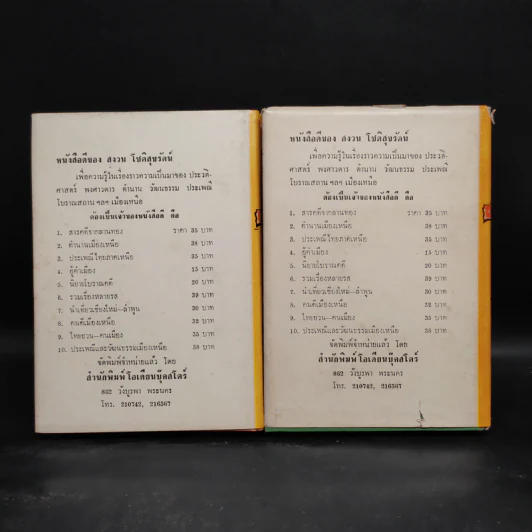 หนังสือดีของ สงวน โชติสุขรัตน์
เพื่อความรู้ในเรื่องราวความเป็นมาของ ประวัติ-
ศาสตร์ พงศาวดาร ตำนาน วัฒนธรรม ประเพณี
โบราณสถาน ฯลฯ เมืองเหนือ
ต้องเป็นเจ้าของหนังสือดี คือ
1. สารคดีจากลานทอง ราคา 35 บาท
2. ตำนานเมืองเหนือ 38 บาท
3. ประเพณีไทยภาคเหนือ 35 บาท
4. ผู้ค่าเมือง 15 บาท
5. นิยายโบราณคดี 20 บาท
6. รวมเรื่องหลายรส 39 บาท
7. นำเที่ยวเชียงใหม่-ลำพูน 30 บาท
8. คนดีเมืองเหนือ 32 บาท
9. ไทยยวน-คนเมือง 35 บาท
10. ประเพณีและวัฒนธรรมเมืองเหนือ 38 บาท
จัดพิมพ์จำหน่ายแล้ว โดย
สำนักพิมพ์โอเดียนบุ๊คสโตร์
862 วังบูรพา พระนคร
โทร. 210742, 216567
หนังสือดีของ สงวน โชติสุขรัตน์
เพื่อความรู้ในเรื่องราวความเป็นมาของ ประวัติ-
ศาสตร์ พงศาวดาร ตำนาน วัฒนธรรม ประเพณี
โบราณสถาน ฯลฯ เมืองเหนือ
ต้องเป็นเจ้าของหนังสือดี คือ
1. สารคดีจากลานทอง ราคา 35 บาท
2. ตำนานเมืองเหนือ 38 บาท
3. ประเพณีไทยภาคเหนือ 35 บาท
4. 15 บาท
5. นิยายโบราณคดี 20 บาท
6. รวมเรื่องหลายรส 39 บาท
7. นำเที่ยวเชียงใหม่-ลำพูน 30 บาท
8. คนดีเมืองเหนือ 32 บาท
9. ไทยยวน-คนเมือง 35 บาท
10. ประเพณีและวัฒนธรรมเมืองเหนือ 38 บาท
จัดพิมพ์จำหน่ายแล้ว โดย
สำนักพิมพ์โอเดียนบุ๊คสโตร์
862 วังบูรพา พระนคร
โทร. 210742, 216567